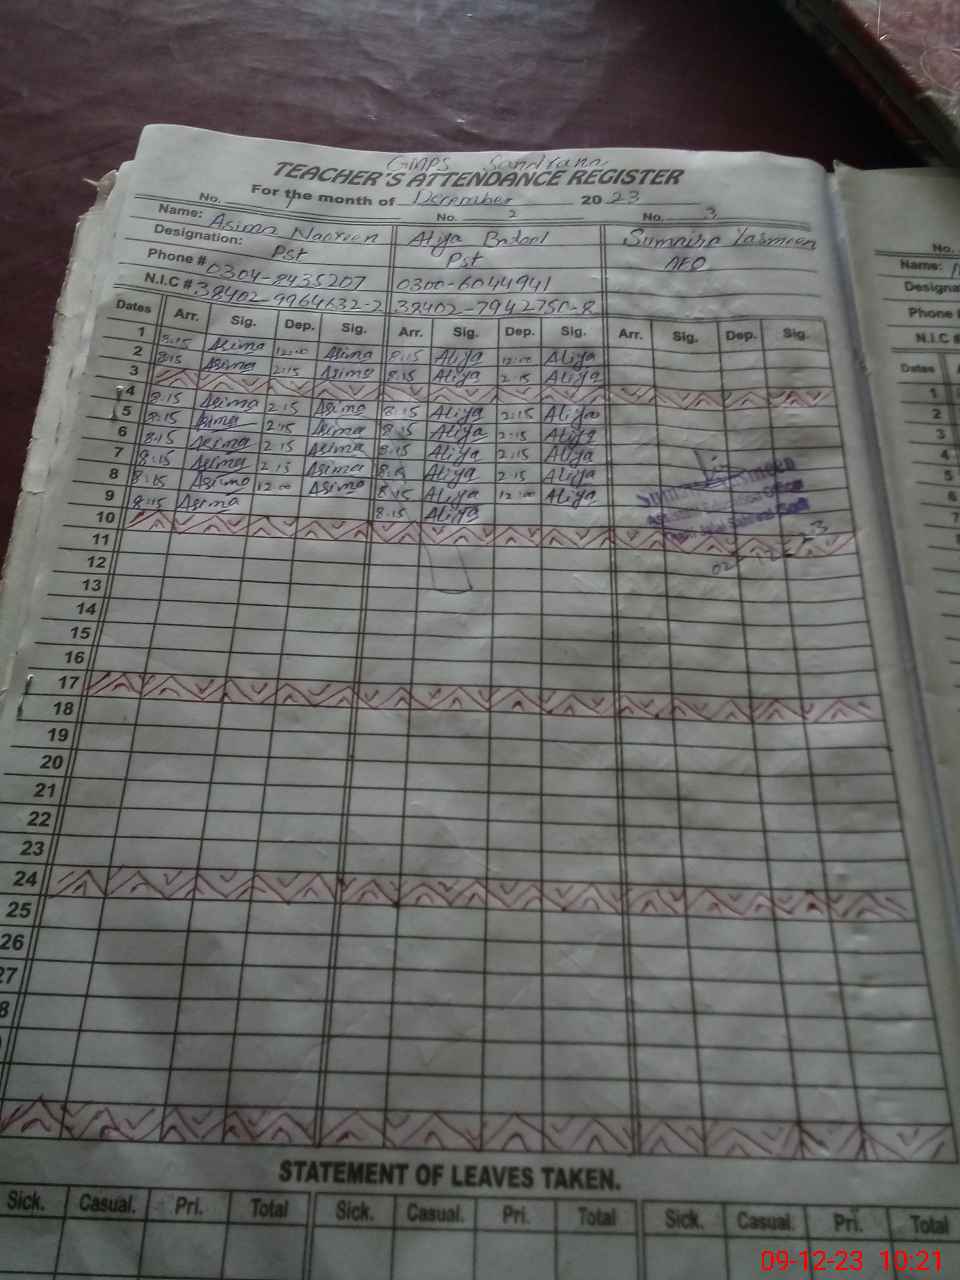 GMPS
TEACHER'S ATTENDANCE REGISTER
For the month of December 2023
No. 1 No. 2 No. 3
Name: Asima Nasreen Aliya Batool Sumaira Yasmeen
Designation: Pst Pst AEO
Phone # 0304-8435207 0300-6044941
N.I.C # 38402-9964632-2 38402-7942750-8
Dates Arr. Sig. Dep. Sig. Arr. Sig. Dep. Sig. Arr. Sig. Dep. Sig.
1 8:15 Asima 12:00 Asima 8:15 Aliya 12:00 Aliya
2 8:15 Asima 2:15 Asima 8:15 Aliya 2:15 Aliya
3
4 8:15 Asima 2:15 Asima 8:15 Aliya 2:15 Aliya
5 8:15 Asima 2:15 Asima 8:15 Aliya 2:15 Aliya
6 8:15 Asima 2:15 Asima 8:15 Aliya 2:15 Aliya
7 8:15 Asima 2:15 Asima 8:15 Aliya 2:15 Aliya
8 8:15 Asima 12:00 Asima 8:15 Aliya 12:00 Aliya
9 8:15 Asima 8:15 Aliya
10
02-12-23
11
12
13
14
15
16
17
18
19
20
21
22
23
24
25
26
27
8
STATEMENT OF LEAVES TAKEN.
Sick. Casual. Pri. Total Sick. Casual. Pri. Total Sick. Casual. Pri. Total
No.
Name:
Designa
Phone #
N.I.C #
Dates
1
2
3
4
5
6
7
09-12-23 10:21